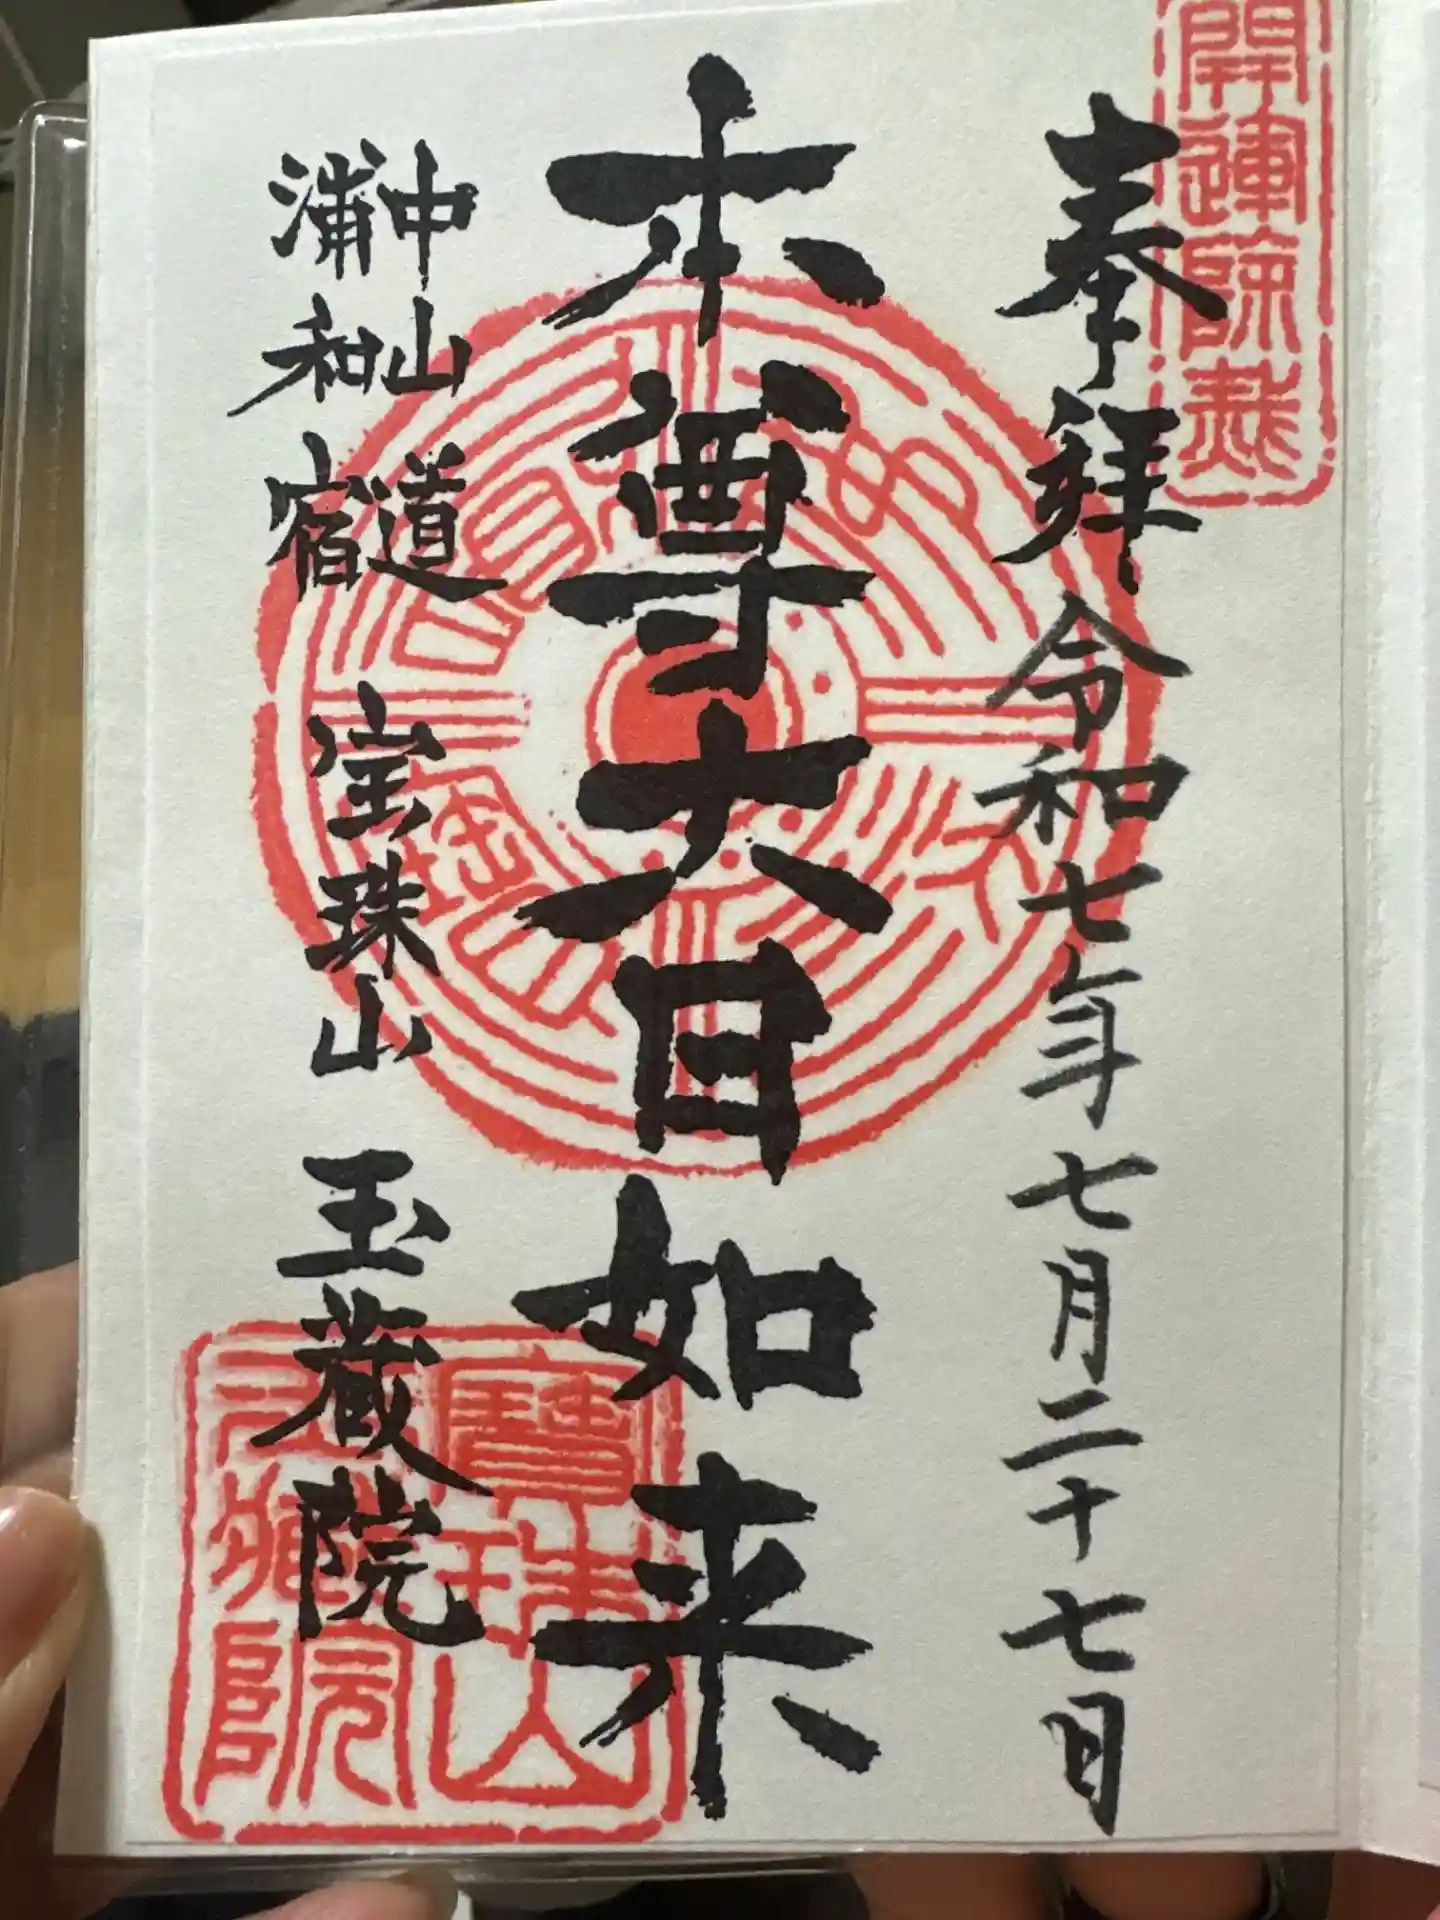 開運除災
奉拝
令和七年七月二十七日
本尊大日如来
中山道
浦和宿
宝珠山
玉蔵院
寶珠山
玉蔵院